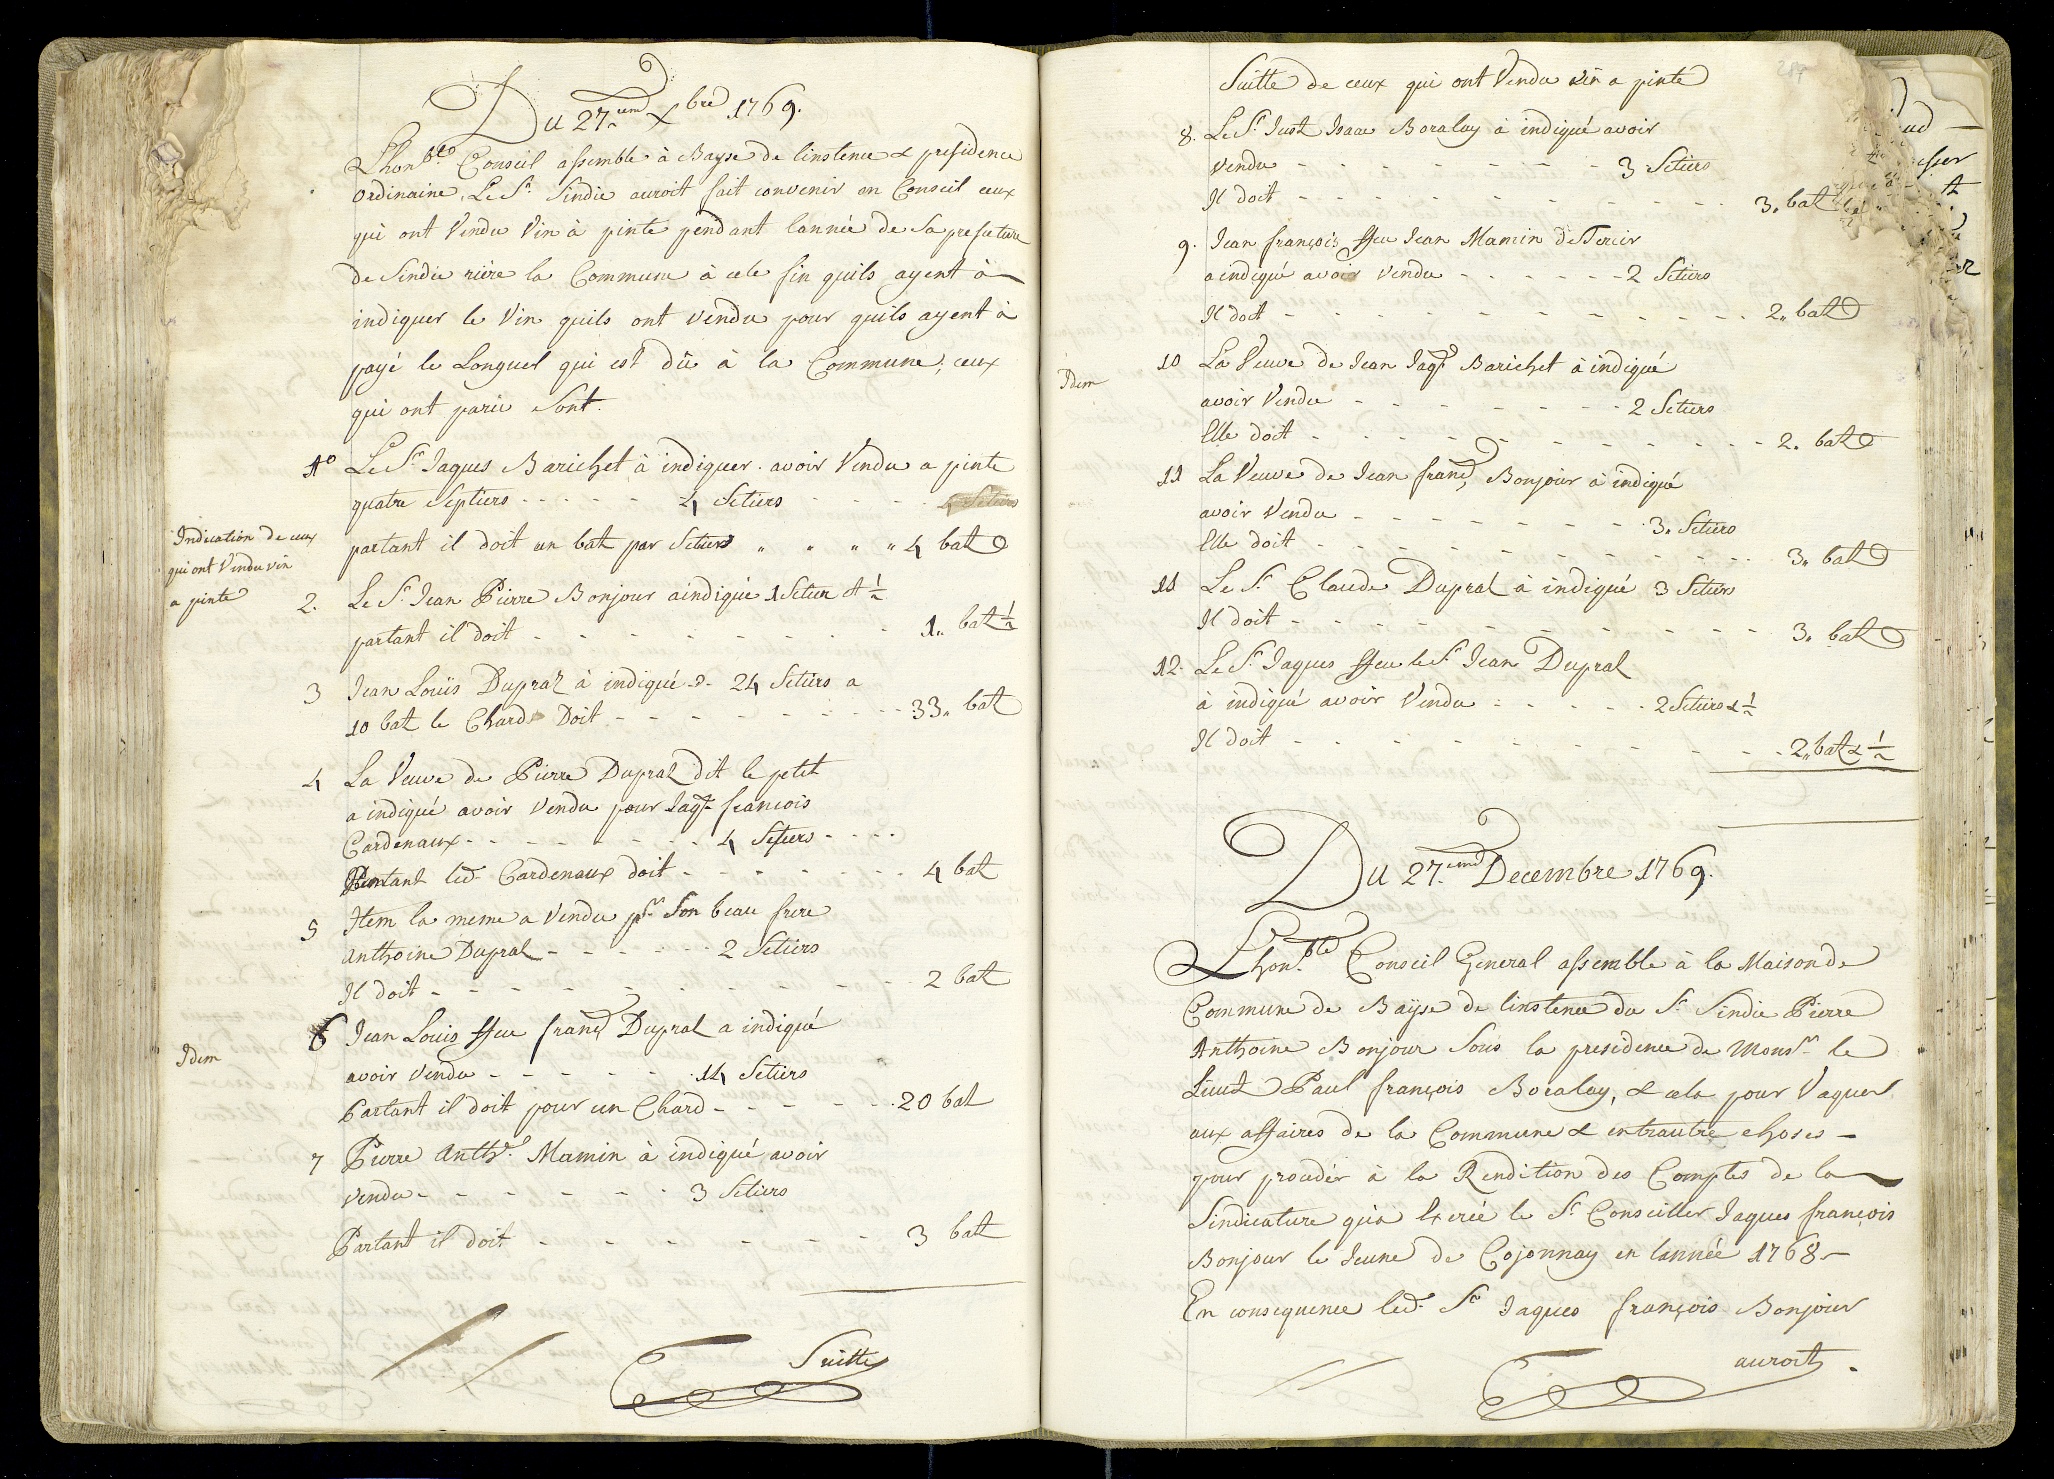 Du 27.eme Xbre 1769.
Lhonble Conseil assemble à Bayse de linstence & presidence
ordinaire, Le Sr Sindic auroit fait convenir en Conseil ceux
qui ont Vendu Vin à pinte pendant lannée de Sa prefecture
de Sindic riére la Commune à cele fin quils ayent à
indiquer le Vin quils ont Vendu pour quils ayent à
payé le Longuel qui est dû à la Commune; ceux
qui ont paru Sont.
1º Le Sr Jaques Barichet à indiquer avoir Vendu a pinte
quatre Septiers - - - - - 4 Setiers - - - 4 Setiers
partant il doit un batz par Setiers „ „ „ „ 4 batz
Indication de ceux
qui ont Vendu vin
a pinte
2. Le Sr Jean Pierre Bonjour a indiqué 1 Setier & 1/2
partant il doit - - - - - - - - 1„ batz 1/2
3 Jean Louis Dupraz à indiqué - 24 Setiers a
10 batz le Chard Doit - - - - - - - 33„ batz
4 La Veuve de Pierre Dupraz dit le petit
a indiqué avoir Vendu pour Jaqs francois
Cardenaux - - - - - - - 4 Setiers - - - -
Partant led. Cardenaux doit - - - - - - - 4 batz
5 Item la meme a Vendu pr Son beau frere
Anthoine Dupraz - - - - - - 2 Setiers
Il doit - - - - - - - - - - - 2 batz
Idem
6 Jean Louis ffeu franç Dupraz a indiqué
avoir Vendu - - - - - - 14 Setiers
Partant il doit pour un Chard - - - - - - 20 batz
7 Pierre Anthe. Mamin à indiqué avoir
vendu - - - - - - - 3 Setiers
Partant il doit - - - - - - - - 3 batz
Suitte
Suitte de ceux qui ont Vendu vin a pinte
8. Le Sr Just Isaac Boralay à indiqué avoir
Vendu - - - - - - - - - 3 Setiers
Il doit - - - - - - - - - - - - 3„ batz
9. Jean françois ffeu Jean Mamin de Tercir
a indiqué avoir vendu - - - - - - 2 Setiers
Il doit - - - - - - - - - - - - 2„ batz
Idem
10 La Veuve de Jean Jaqs Barichet à indiqué
avoir Vendu - - - - - - - - 2 Setiers
Elle doit - - - - - - - - - - - - 2. batz
11 La Veuve de Jean franç, Bonjour à indiqué
avoir Vendu - - - - - - - - - 3„ Setiers
Elle doit - - - - - - - - - - - - 3„ batz
11 Le Sr Claude Dupraz à indiqué 3 Setiers
Il doit - - - - - - - - - - - - 3„ batz
12. Le Sr Jaques ffeu le Sr Jean Dupraz
à indiqué avoir Vendu - - - - - - 2 Setiers & 1/2
Il doit - - - - - - - - - - - - 2„ batz & 1/2
Du 27.eme Decembre 1769.
Lhonble Conseil General assemble à la Maison de
Commune de Bayse de linstence du Sr Sindic Pierre
Anthoine Bonjour Sous la presidence de Monsr le
Lieut Paul françois Boralay, & cela pour Vaquer
aux affaires de la Commune & entrautre choses -
pour proceder à la Rendition des Comptes de la
Sindicature qu'a Exercé le Sr Conseiller Jaques françois
Bonjour le Jeune de Cojonnay en lannée 1768 -
En consequence led. Sr Jaques françois Bonjour
auroit